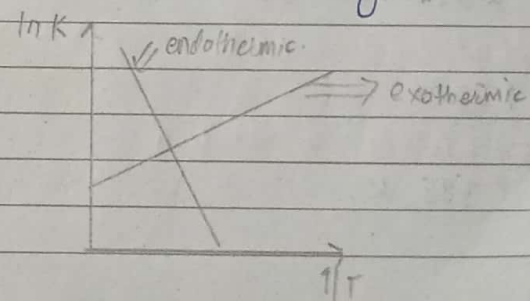 ln K
endothermic.
exothermic
1/T